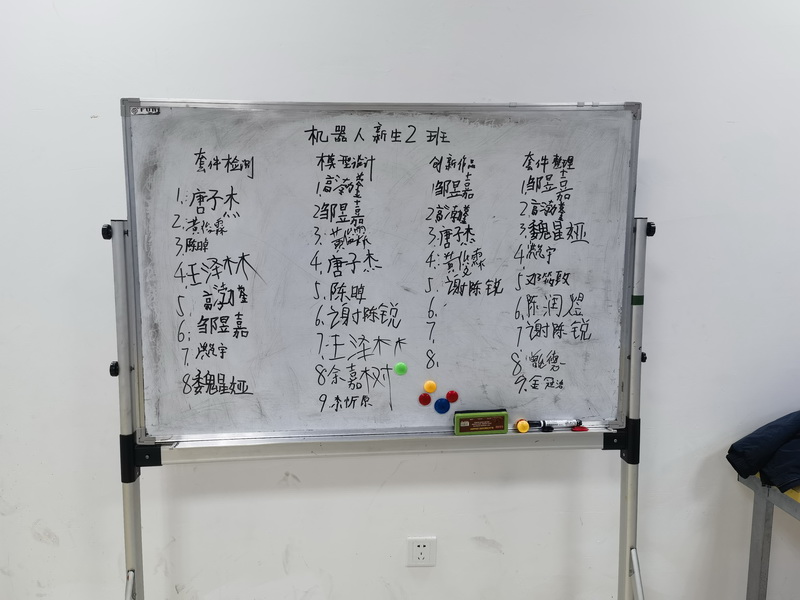 机器人新生2班
套件检测
1.唐子杰
2.黄俊霖
3.陈焯
4.王泽林
5.高瀚蓥
6.邹昱嘉
7.宇
8.魏星娅
模型设计
1.高瀚蓥
2.邹昱嘉
3.黄俊霖
4.唐子杰
5.陈焯
6.谢陈锐
7.王泽林
8.余嘉树
9.
创新作品
1.邹昱嘉
2.高瀚蓥
3.唐子杰
4.黄俊霖
5.谢陈锐
6.
7.
8.
套件整理
1.邹昱嘉
2.高瀚蓥
3.魏星娅
4.宇
5.邓
6.陈润熠
7.谢陈锐
8.
9.金冠